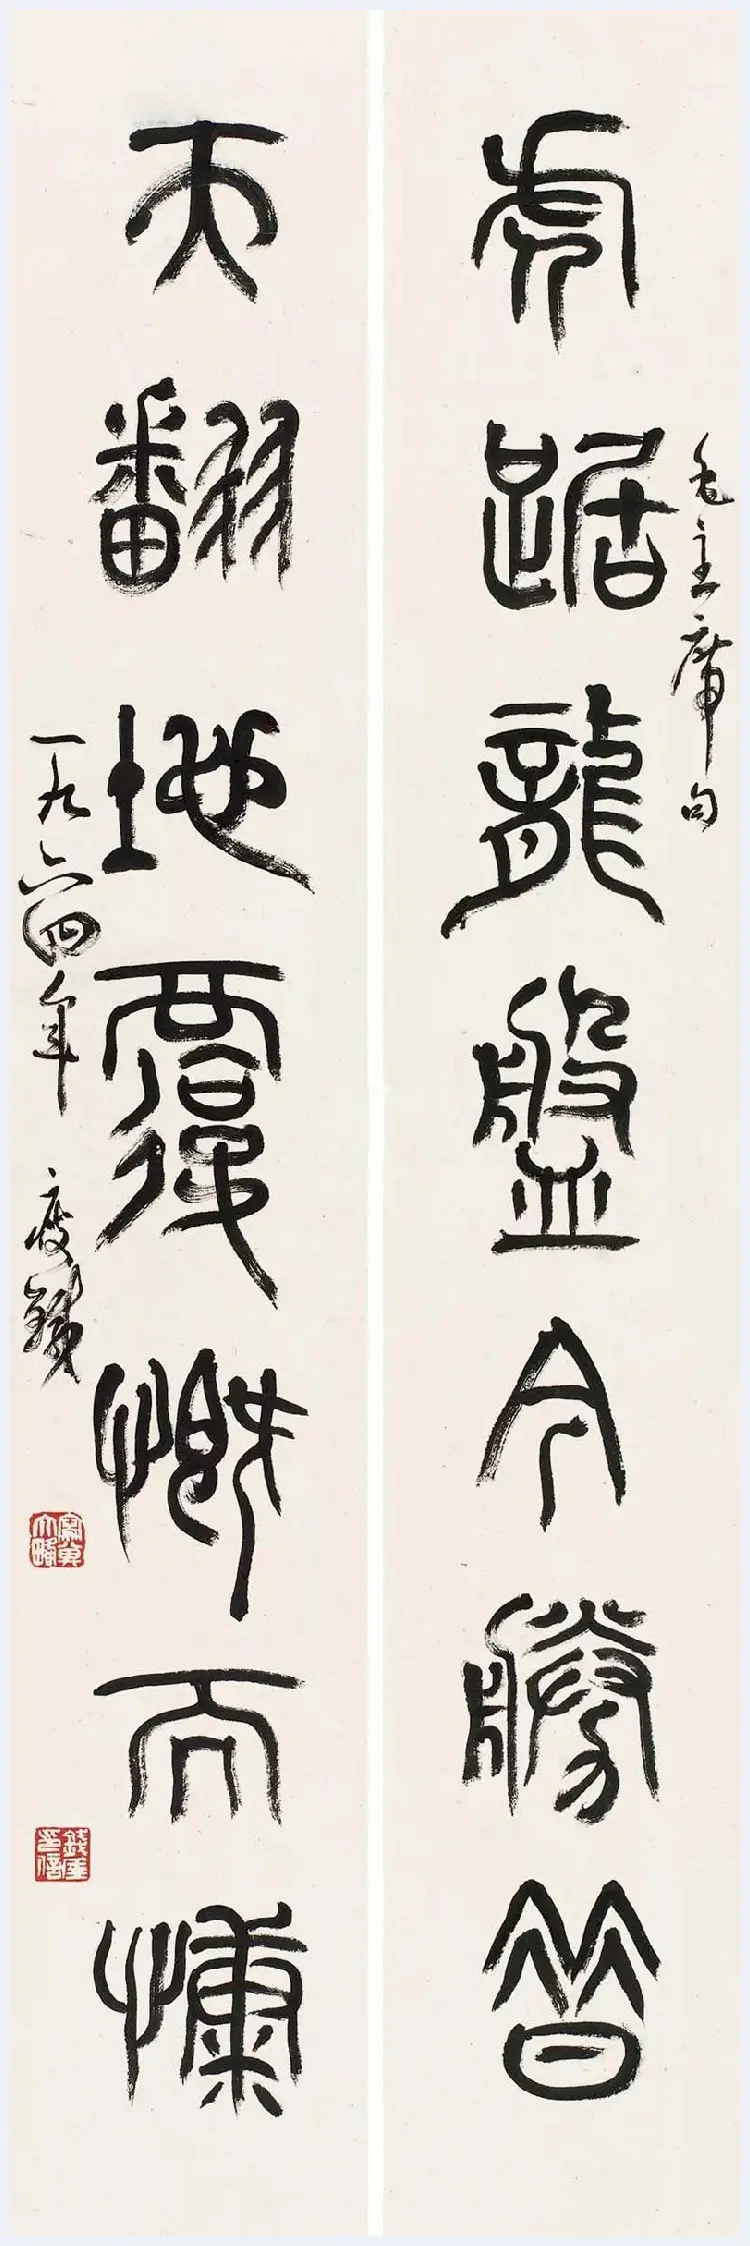 虎踞龍盤今勝昔
毛主席句
天翻地覆慨而慷
一九六四年 瘦鐵
錢厓印信